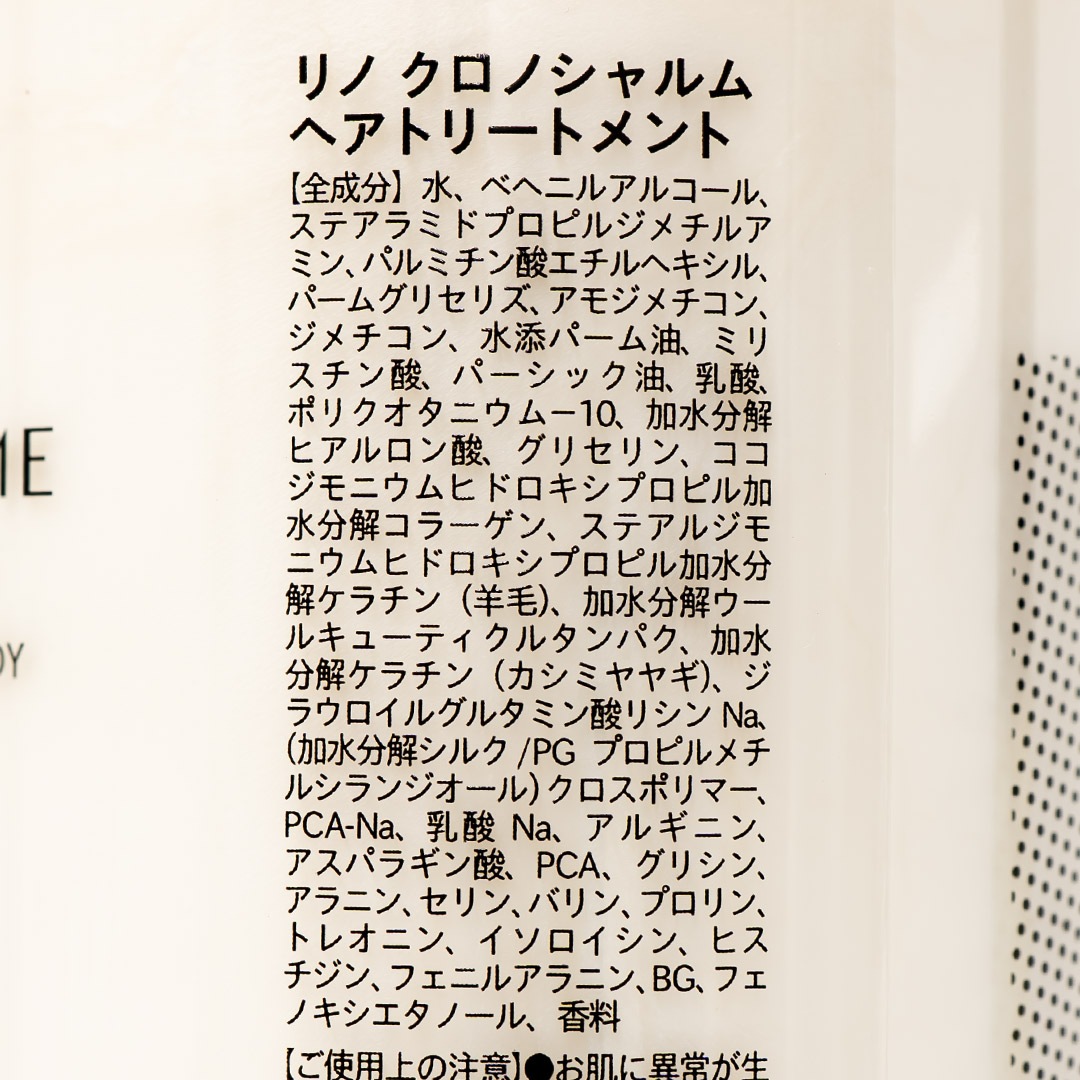 リノ クロノシャルム
ヘアトリートメント
【全成分】水、ベヘニルアルコール、
ステアラミドプロピルジメチルア
ミン、パルミチン酸エチルヘキシル、
パームグリセリズ、アモジメチコン、
ジメチコン、水添パーム油、ミリ
スチン酸、パーシック油、乳酸、
ポリクオタニウムー10、加水分解
ヒアルロン酸、グリセリン、ココ
ジモニウムヒドロキシプロピル加
水分解コラーゲン、ステアルジモ
ニウムヒドロキシプロピル加水分
解ケラチン（羊毛）、加水分解ウー
ルキューティクルタンパク、加水
分解ケラチン（カシミヤヤギ）、ジ
ラウロイルグルタミン酸リシン Na、
（加水分解シルク /PG プロピルメチ
ルシランジオール）クロスポリマー、
PCA-Na、乳酸 Na、アルギニン、
アスパラギン酸、PCA、グリシン、
アラニン、セリン、バリン、プロリン、
トレオニン、イソロイシン、ヒス
チジン、フェニルアラニン、BG、フェ
ノキシエタノール、香料
【ご使用上の注意】●お肌に異常が生